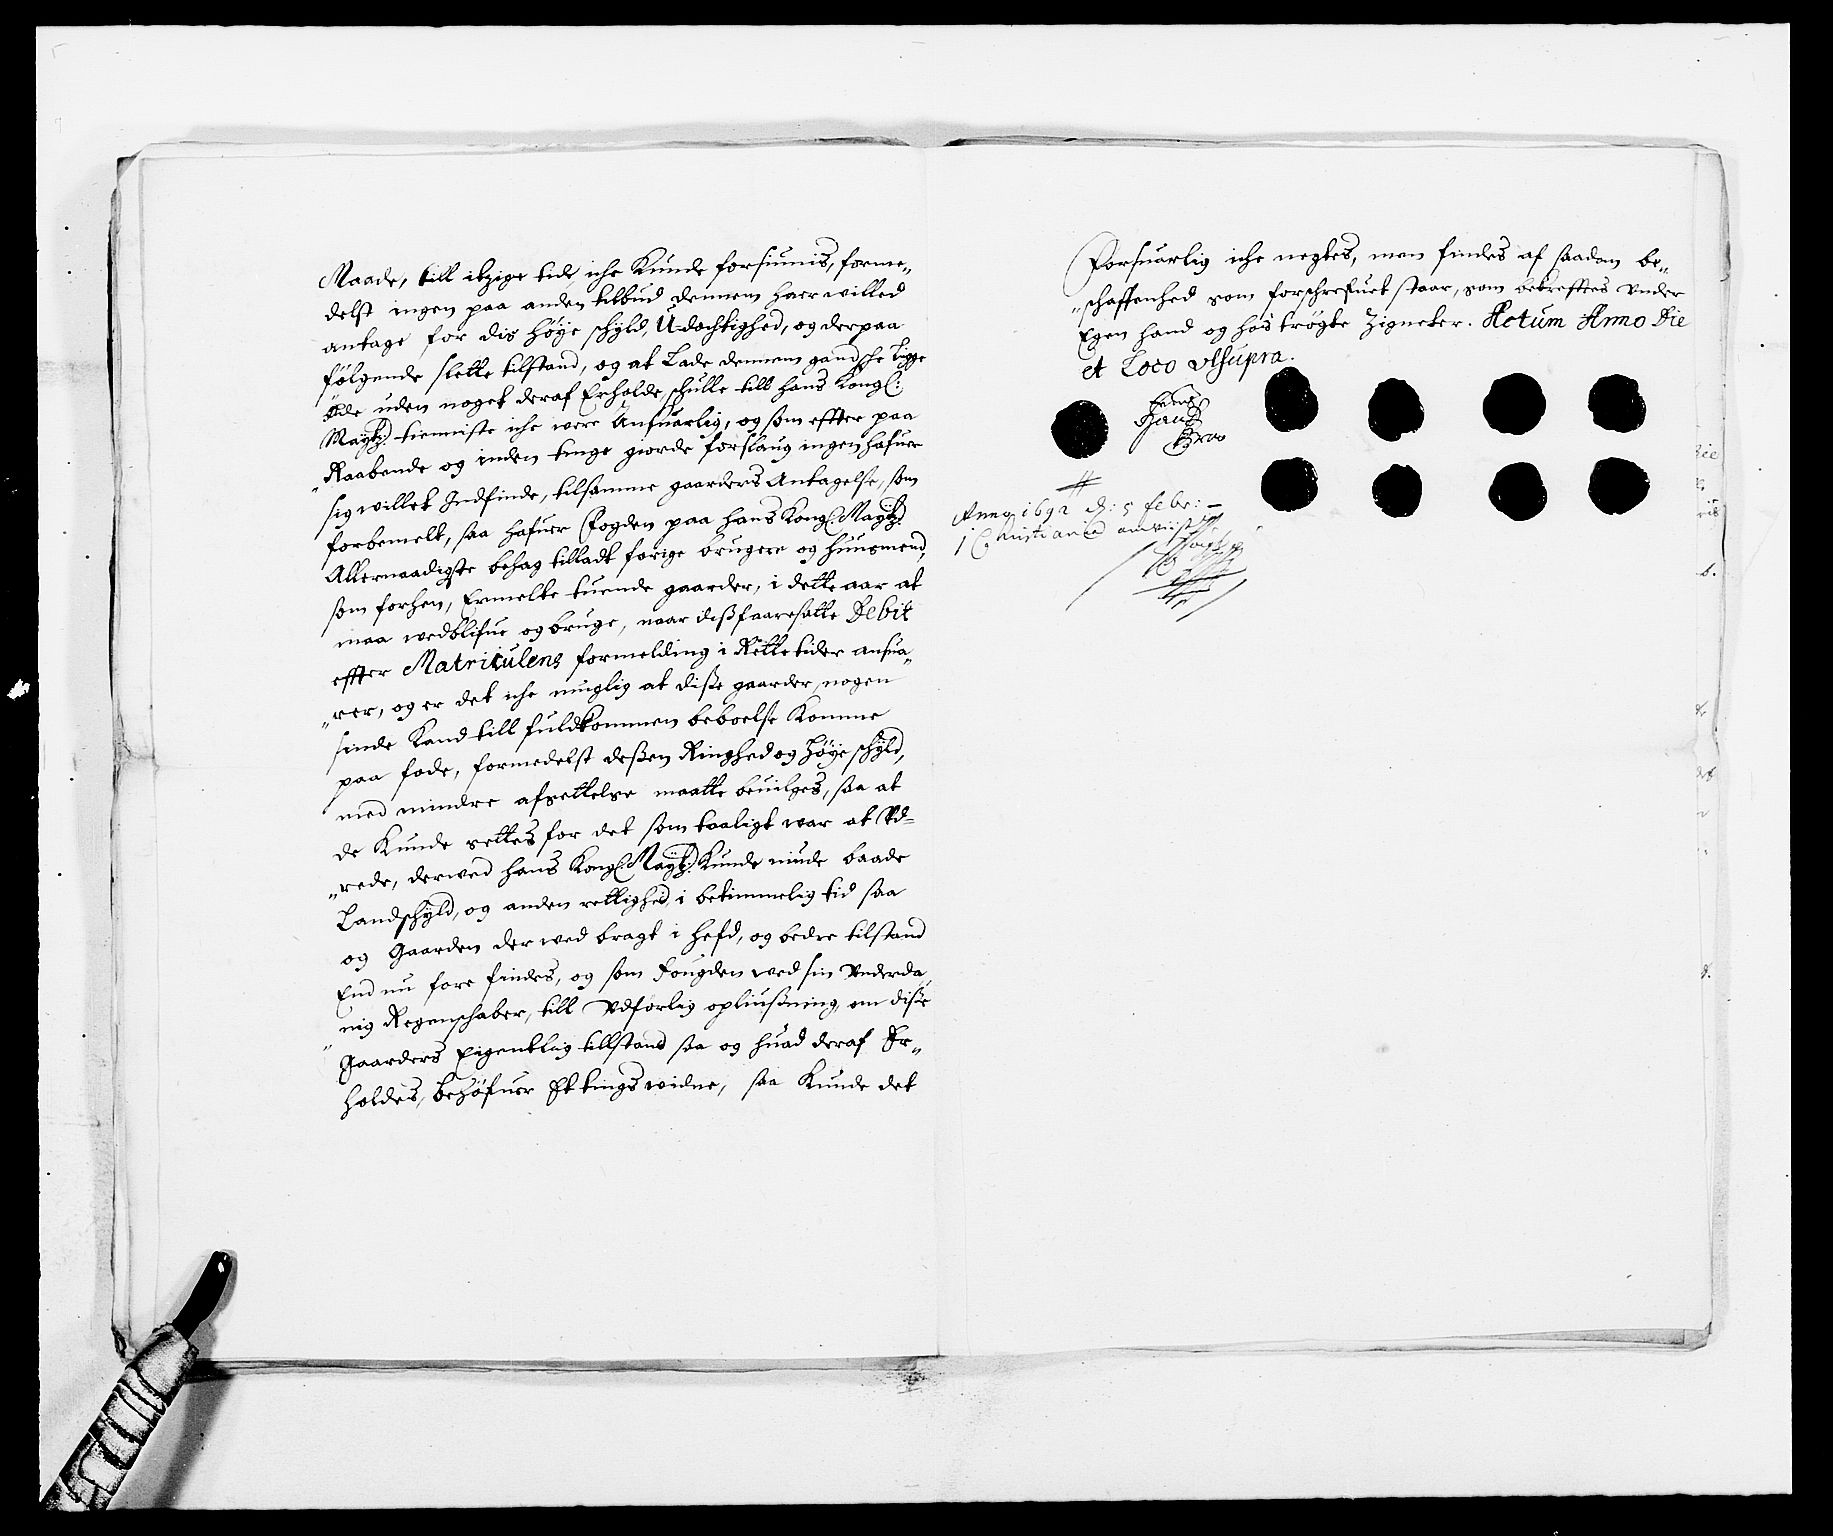 Maade, till itzige tide iche Kunde forsiunis, forme„
delst ingen paa anden tilbud dennem haer willed
antage for dis høye schyld, U-dochtighed, og derpaa
følgende slette tilstand, og at Lade dennem gandsche Ligge
øde uden noget deraf Erholde, schulle till hans Kongl:
Maytz: tienniste iche were Ansuarlig, og som effter paa
„Raabende og inden tinge giorde forslaug ingen hafuer
sig willet Indfinde, tilsamme gaarders Antagelse, som
forbemelt, saa hafuer Fogden paa hans Kongl: Maytz:
Allernaadigste behag tilladt forige brugere og huusmend,
som forhen, Ermelte tuende gaarder, i dette aar at
maa wedblifue og bruge, naar disß faaresatte Debit
effter Matriculens formelding i Rette tider ansua„
„rer, og er det iche muglig at disse gaarder, nogen
sinde Kand till fuldkommen beboelse Komme
paa fode, formedelst desßen Ringhed og Høye schyld,
med mindre afsettelse maatte beuilges, saa at
de Kunde settes for det som taaligt war at Vd=
„rede, derwed hans Kongl: Maytz: Kunde niude baade
Landschyld, og anden rettighed i betimmelig tid saa
og Gaarden der wed bragt i hefd, og bedre tilstand
End nu fore findes, og som Fougden wed sin Vnderda
nig Regenschaber, till Vdførlig opliusßning, om disße
„Gaarders Eigentlig tillstand saa og huad deraf Er„
holdes, behøfuer Et tings widne, saa Kunde det
Forsuarlig iche negtes, men findes af saadan be„
„schaffenhed som forschrefuet staar, som bekrefftes Vnder
Egen hand og hostrøgte Zigneter. Actum Anno Die
et Loco vtsupra.
Anno 1692 d: 5 Febr: –
i Christiania anviist